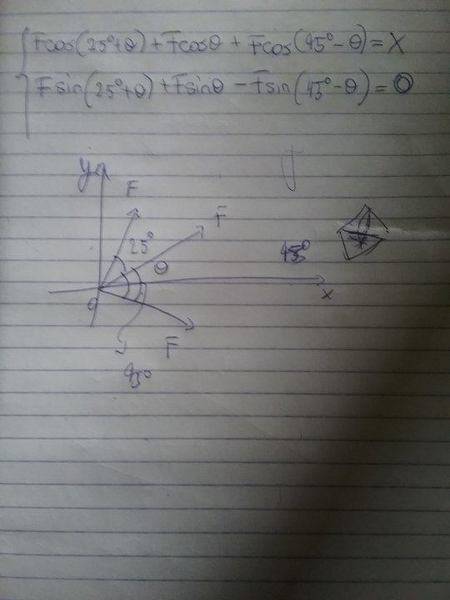 Fcos(25°+θ)+Fcosθ+Fcos(45°-θ)=X
Fsin(25°+θ)+Fsinθ-Fsin(45°-θ)=0
y
F
F
25°
θ
45°
x
F
45°